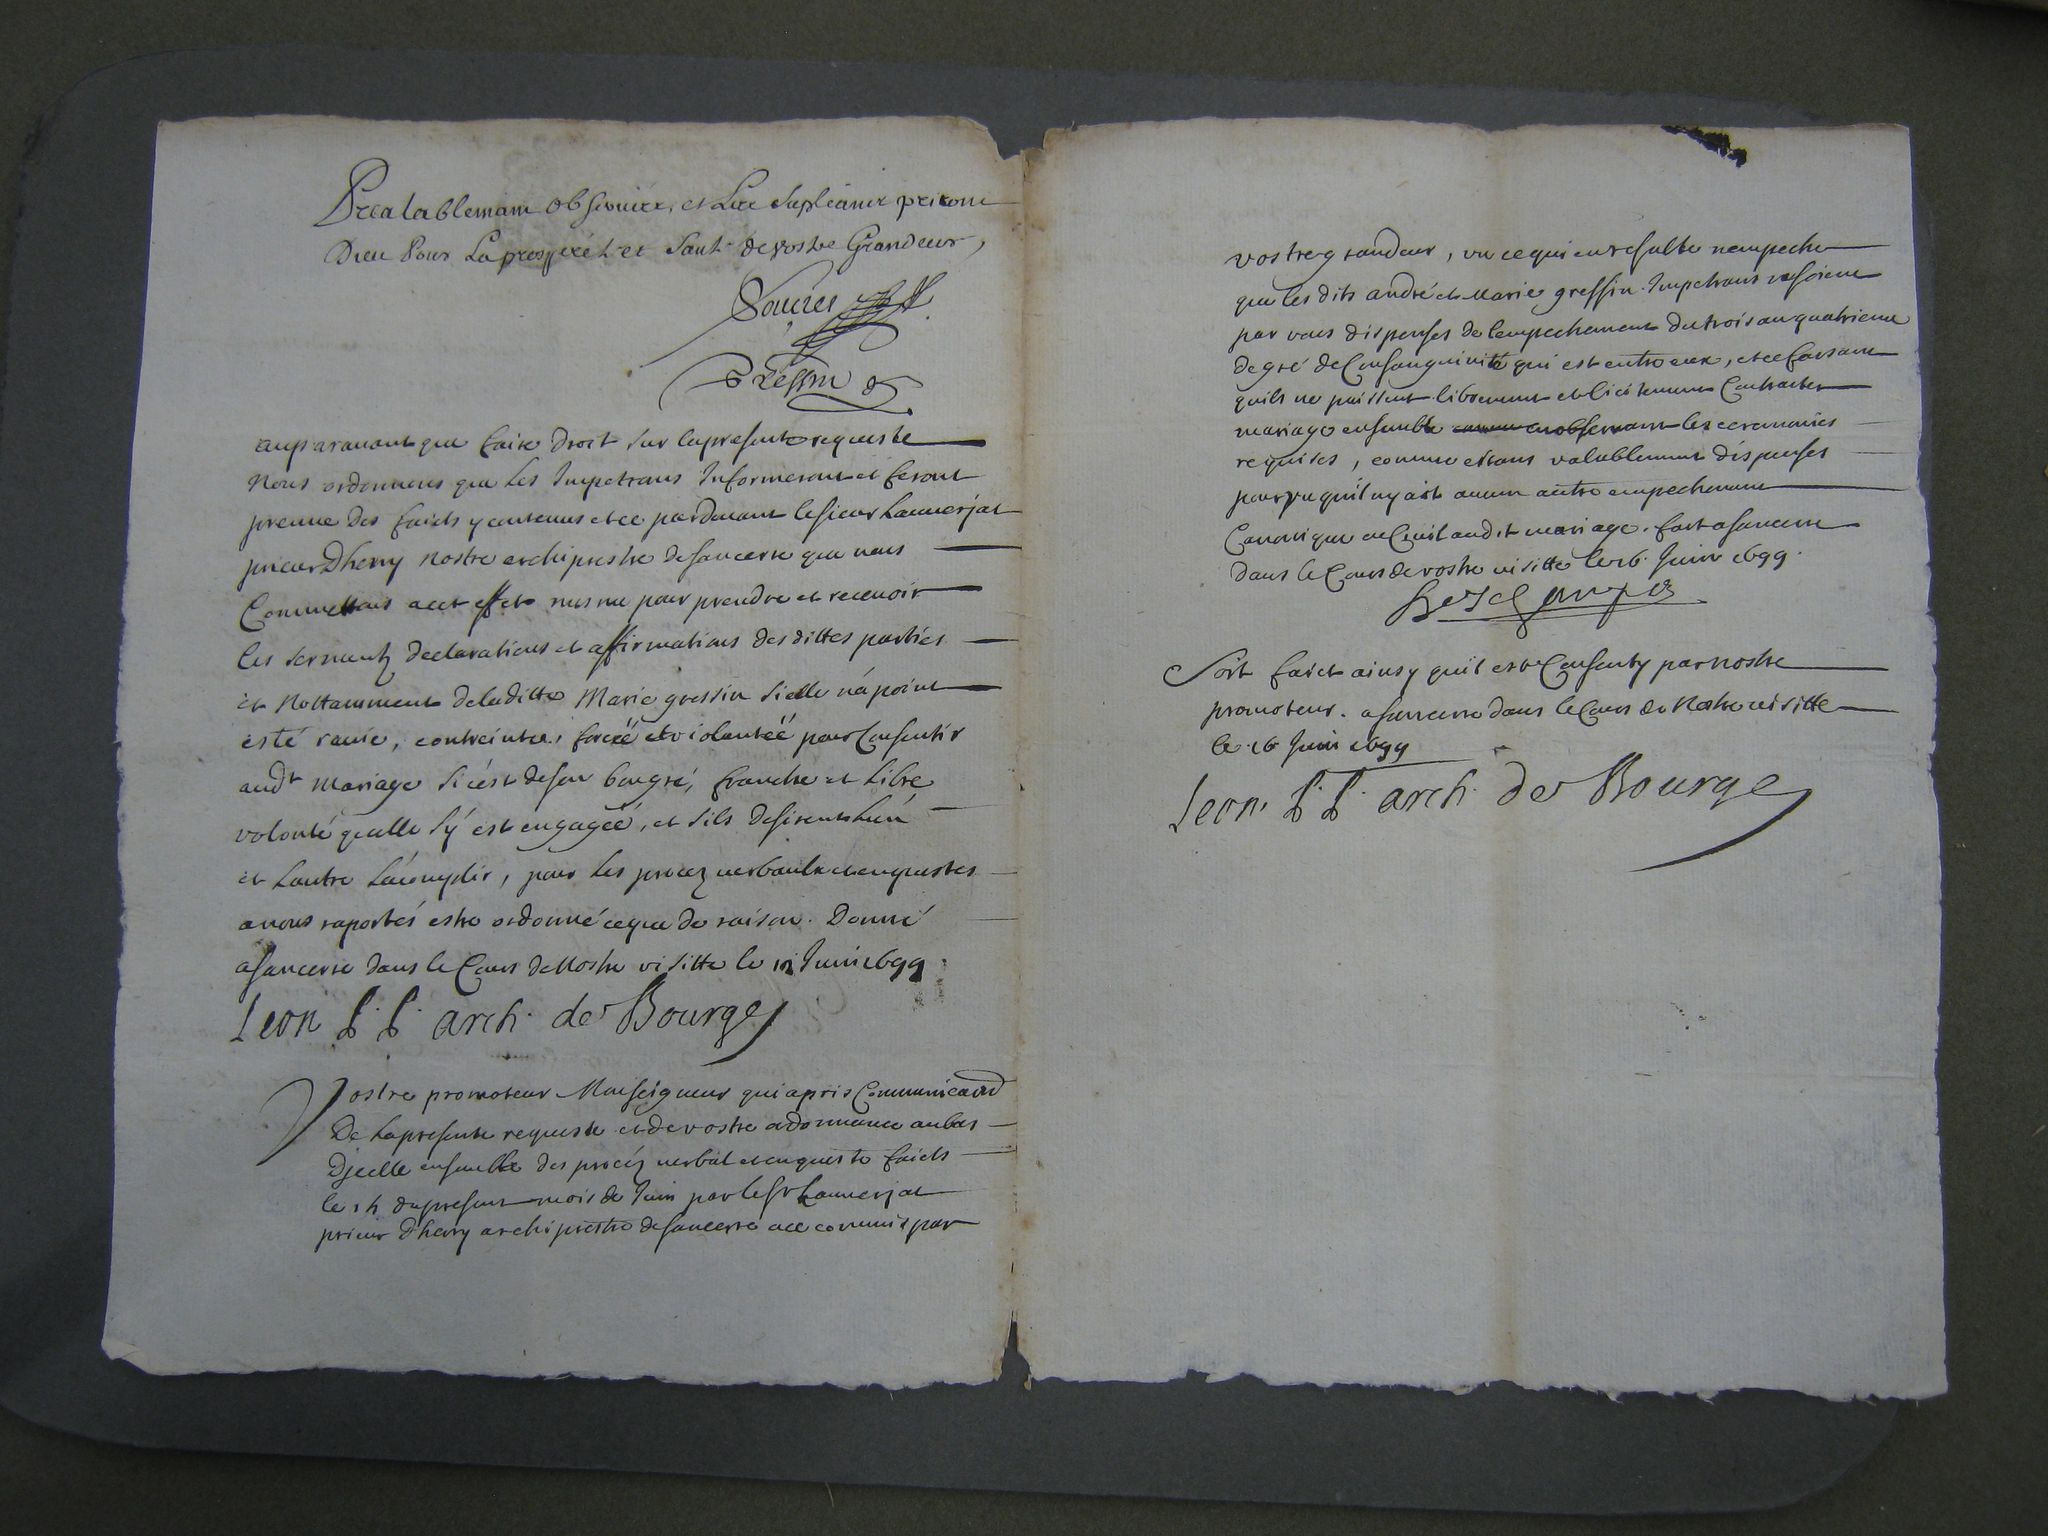 Prealablemant observées, et Les supliants priront
Dieu Pour La prosperité et santé de vostre Grandeur,
Gressin
auparavant que faire droit sur lapresente requeste
Nous ordonnons que Les Impetrans Informeront et feront
preuve des faicts y contenus et ce pardevant le sieur Lauverjat
prieur Dhery nostre archiprestre de sancerre que nous
Commettons acet effet mesme pour prendre et recevoir
les serments declarations et affirmations des dittes parties
et Nottamment deladitte Marie gressin si elle n'a point
esté ravie, contreinte, forcéé et violantéé pour Consentir
audt Mariage si c'est de son bon gré, franche et Libre
volonté quelle s'y est engagéé, et sils desirent L'un
et Lautre L'acomplir, pour Les procez verbaulx et enquestes
a nous raportés estre ordonné ceque de raison. Donné
a sancerre dans le Cours de Nostre visitte le 12 Juin 1699.
Leon P. P. arch. de Bourges
Vostre promoteur Monseigneur qui apris Communicaon
De Lapresente requeste et de vostre ordonnance au bas
Dicelle ensemble des procéz verbal et enqueste faicts
le 14 du present mois de Juin par le sr Lauverjat
prieur Dhery archiprestre de sancerre a ce commis par
vostre grandeur, vu ce qui en resulte n'empeche
que les dits andré et Marie gressin Impetrans ne soient
par vous dispensés de lempechement du trois au quatrieme
degré de Consanguinité qui est entre eux, et ce faisant
quils ne puissent librement et licitement Contracter
mariage ensemble en observant les ceremonies
requises, comme estans valablement dispensés
pourvu quil ny ait aucun autre empechement
Canonique ou Civil audit mariage. fait a sancerre
dans le Cours de vostre visitte le 16. Juin 1699.
Soit faict ainsy quil est Consenty par nostre
promoteur. a sancerre dans le Cours de Nostre visitte
le 16 Juin 1699
Leon P. P. arch. de Bourges